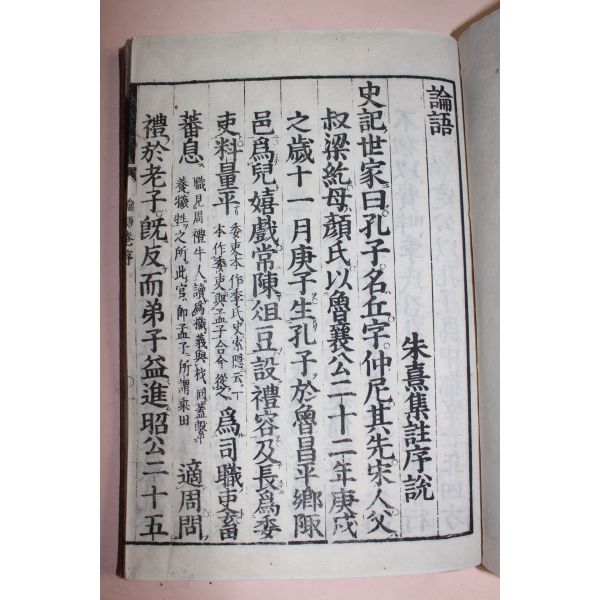 論語
朱熹集註序說
史記世家曰孔子名丘字仲尼其先宋人父
叔梁紇母顏氏以魯襄公二十二年庚戌
之歲十一月庚子生孔子於魯昌平鄉陬
邑爲兒嬉戲常陳俎豆設禮容及長爲委
吏料量平
委吏本作季氏史索隱云一
本作委吏與孟子合今從之
爲司職吏畜
蕃息
職見周禮牛人讀爲樴義與杙同蓋繫
養犧牲之所此官卽孟子所謂乘田
適周問
禮於老子旣反而弟子益進昭公二十五
論語卷序